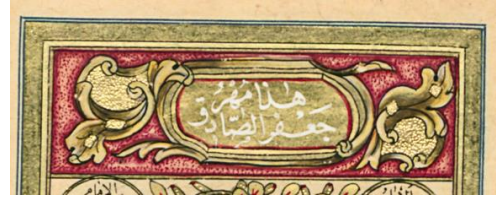 هذا مُهْرُ
جَعْفَر الصَّادِق
الإمام